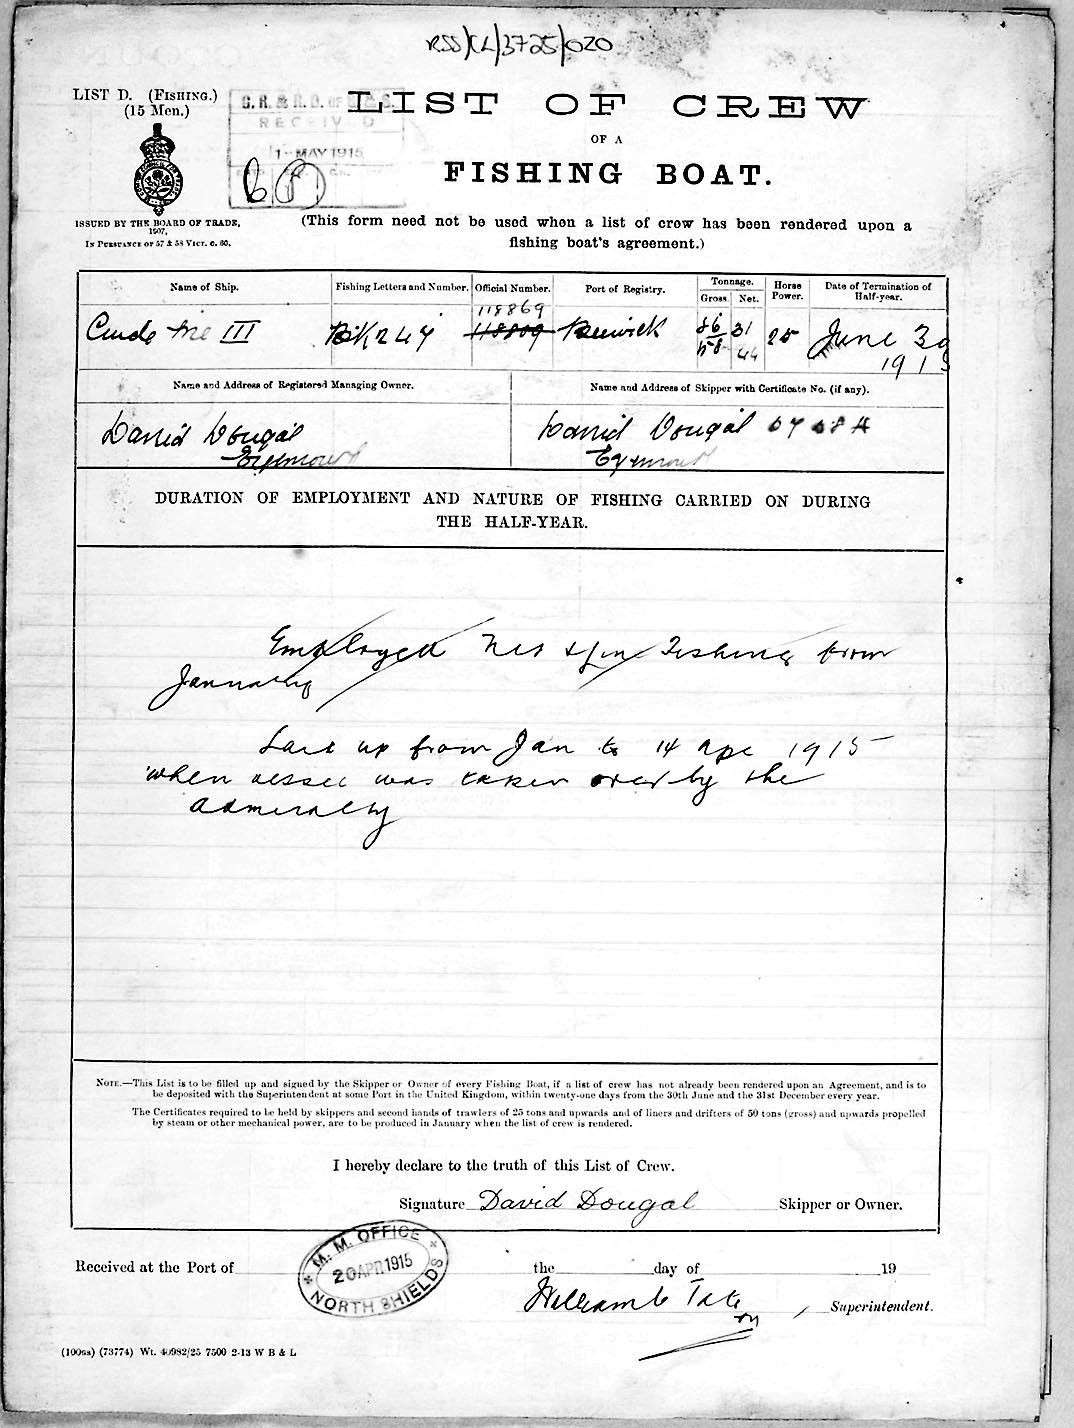 RSS/CL/3725/020
LIST D. (FISHING.)
(15 Men.)
RECEIVED
1 - MAY 1915
LIST OF CREW
OF A
FISHING BOAT.
ISSUED BY THE BOARD OF TRADE,
1907,
IN PURSUANCE OF 57 & 58 VICT. C. 60.
(This form need not be used when a list of crew has been rendered upon a
fishing boat's agreement.)
Name of Ship. Fishing Letters and Number. Official Number. Port of Registry. Tonnage. Gross. Net. Horse Power. Date of Termination of Half-year.
118869
III BK 247 118809 Berwick 56 31 25 June 30
58 44 1915
Name and Address of Registered Managing Owner. Name and Address of Skipper with Certificate No. (if any).
David Dougal David Dougal
Eyemouth Eyemouth
DURATION OF EMPLOYMENT AND NATURE OF FISHING CARRIED ON DURING
THE HALF-YEAR.
Employed Net & Line Fishing from
January
Laid up from Jan to 14 Apr 1915
when vessel was taken over by the
Admiralty
NOTE.—This List is to be filled up and signed by the Skipper or Owner of every Fishing Boat, if a list of crew has not already been rendered upon an Agreement, and is to
be deposited with the Superintendent at some Port in the United Kingdom, within twenty-one days from the 30th June and the 31st December every year.
The Certificates required to be held by skippers and second hands of trawlers of 25 tons and upwards and of liners and drifters of 50 tons (gross) and upwards propelled
by steam or other mechanical power, are to be produced in January when the list of crew is rendered.
I hereby declare to the truth of this List of Crew.
Signature David Dougal Skipper or Owner.
M. M. OFFICE
20 APR 1915
NORTH SHIELDS
Received at the Port of the day of 19
William Superintendent.
(100GS) (73774) Wt. 40982/25 7500 2-13 W B & L